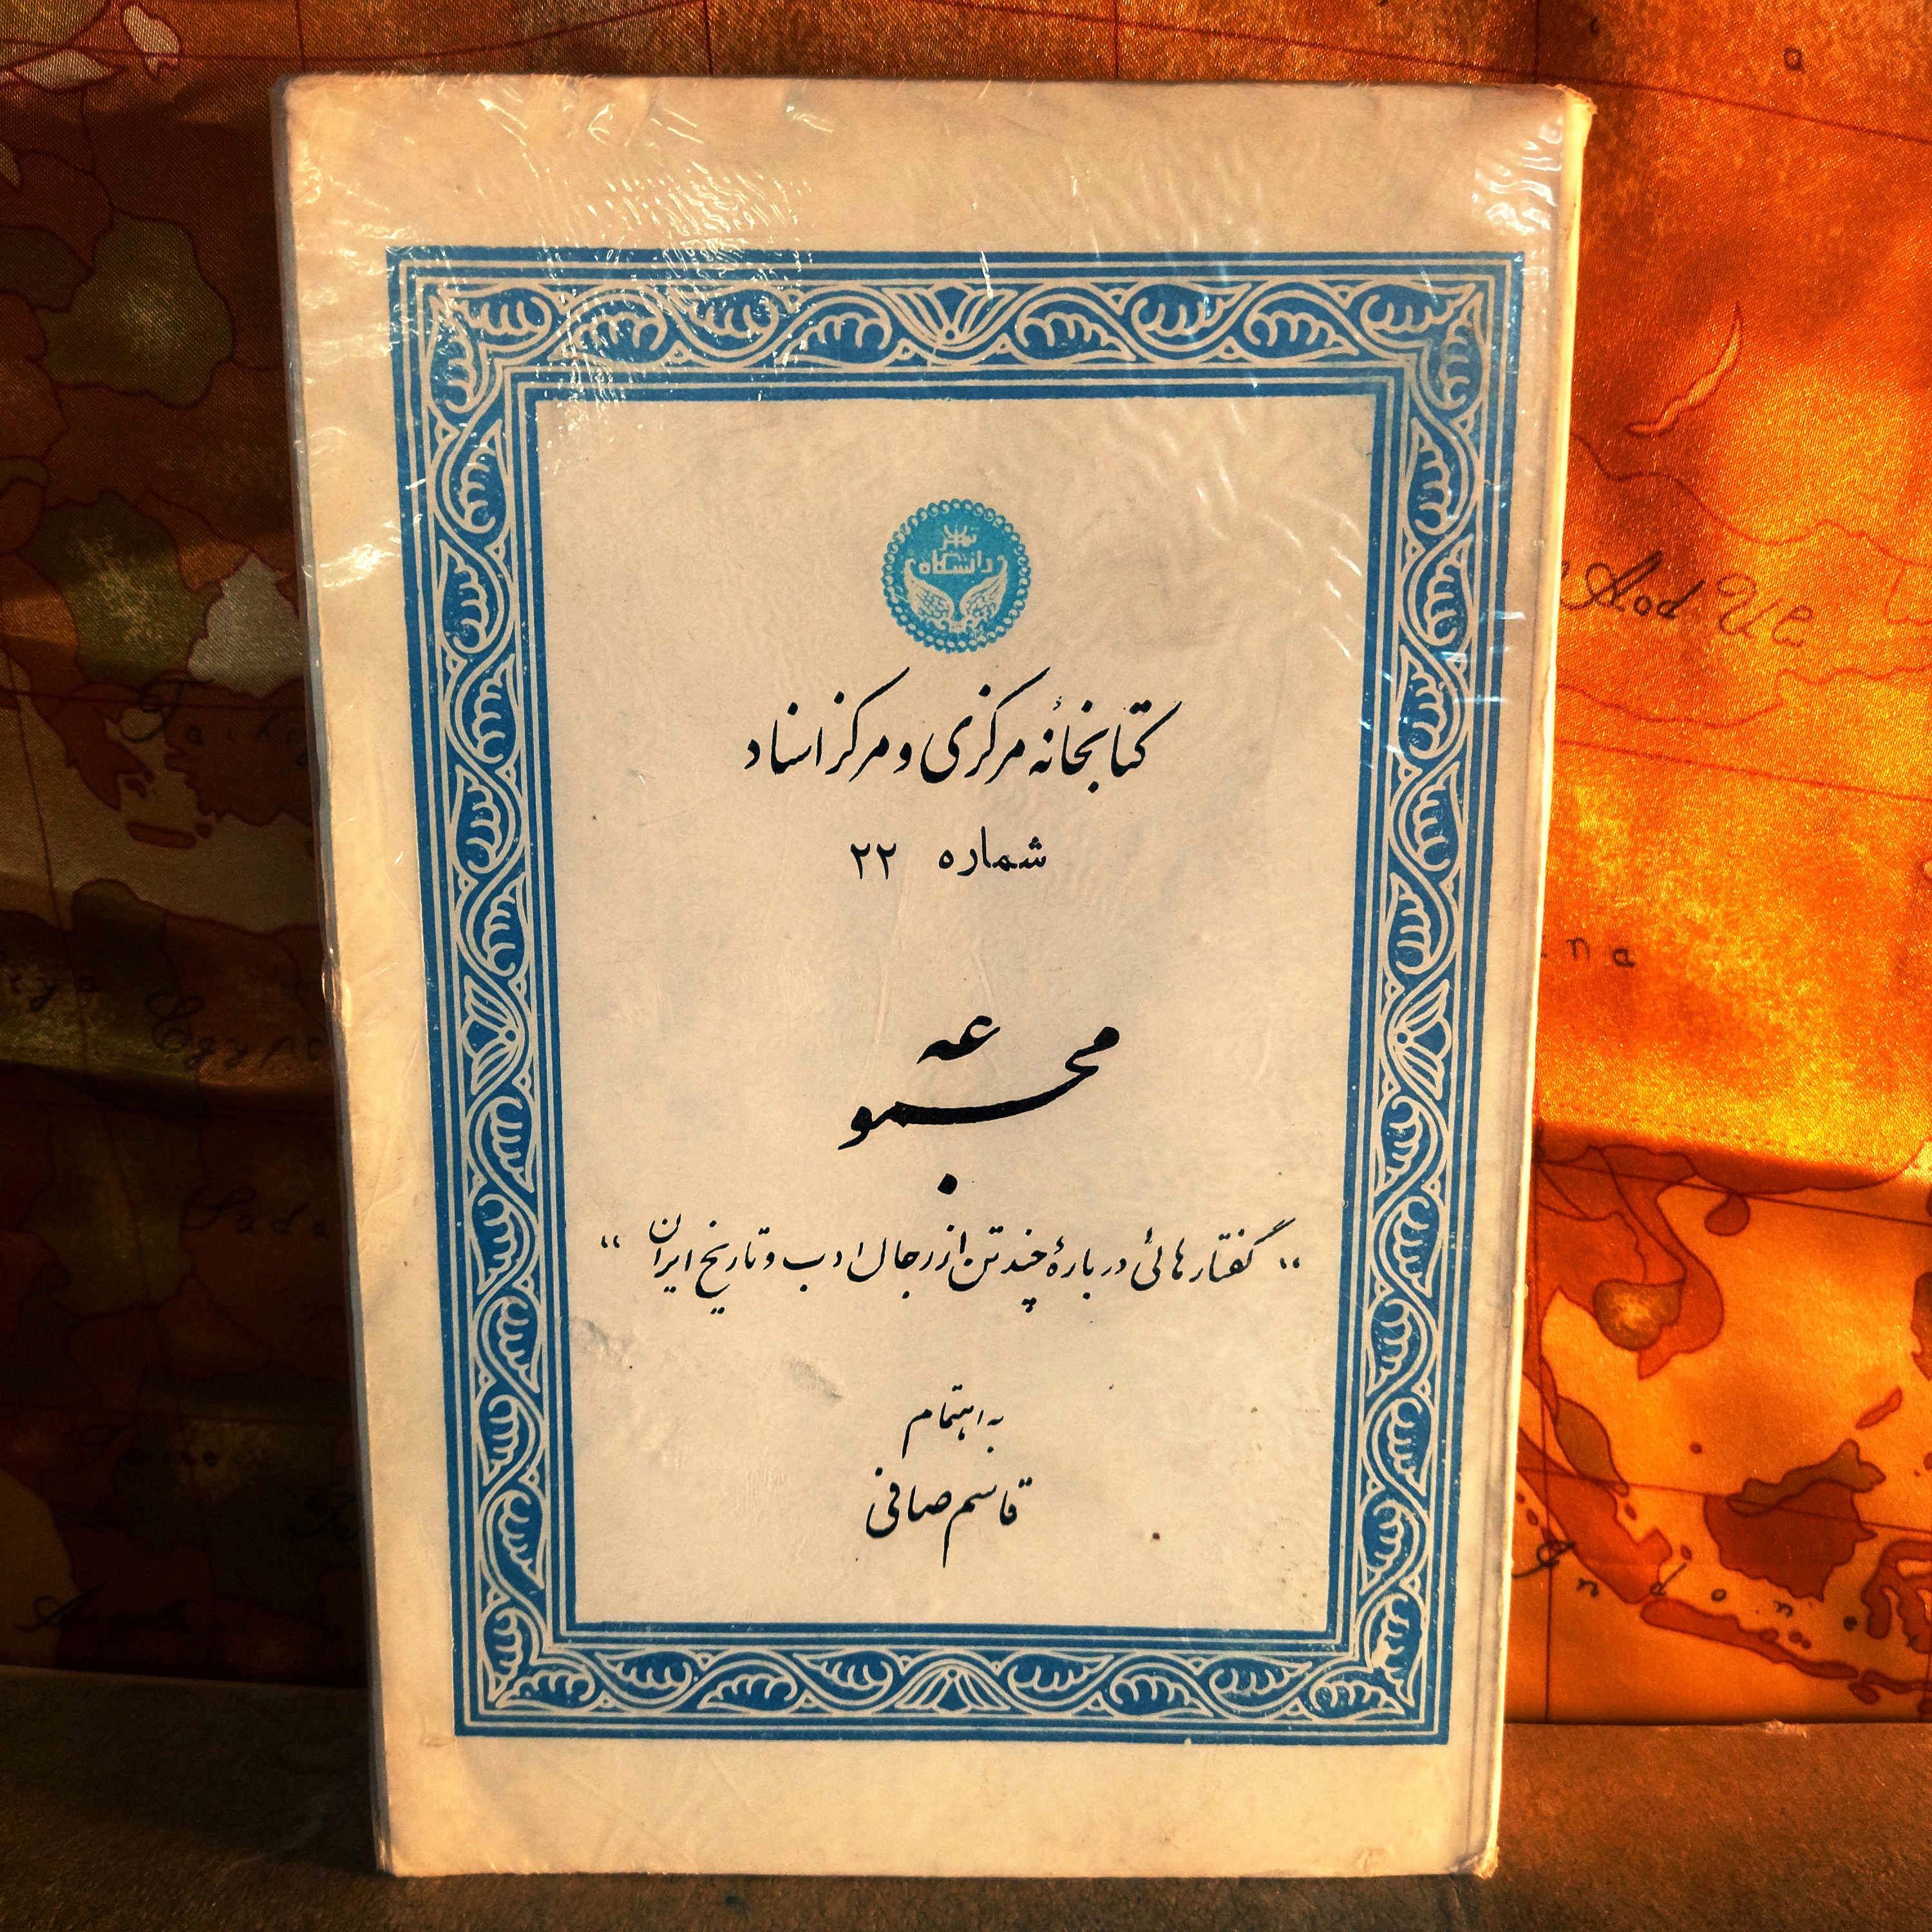 دانشگاه
تهران
کتابخانهٔ مرکزی و مرکز اسناد
شماره ۲۲
مجموعه
„ گفتارهائی دربارهٔ چند تن از رجال ادب و تاریخ ایران “
به اهتمام
قاسم صافی
Egypt
na
Indone